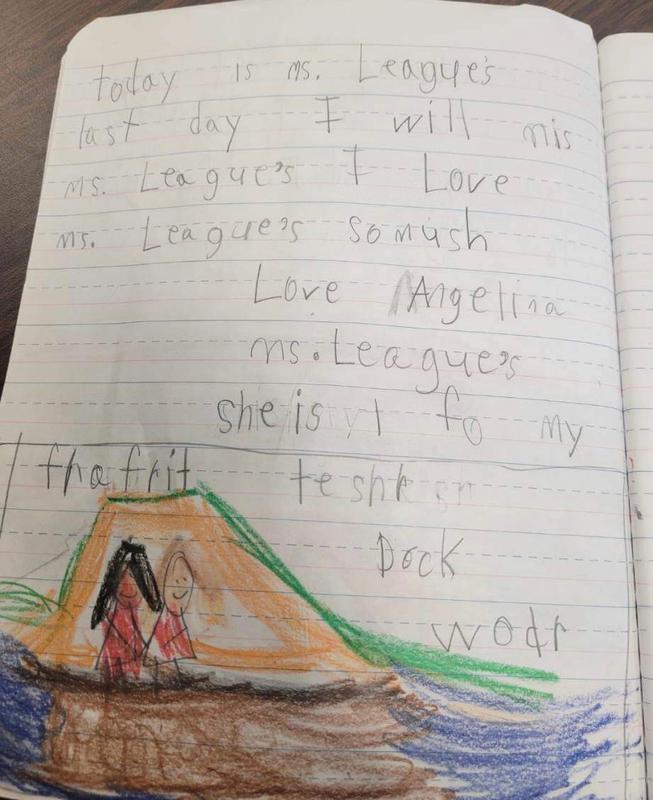 today is ms. League's
last day I will mis
ms. League's I Love
ms. League's somush
Love Angelina
ms. League's
she is fo my
fha frit teshk
Dock
wodr